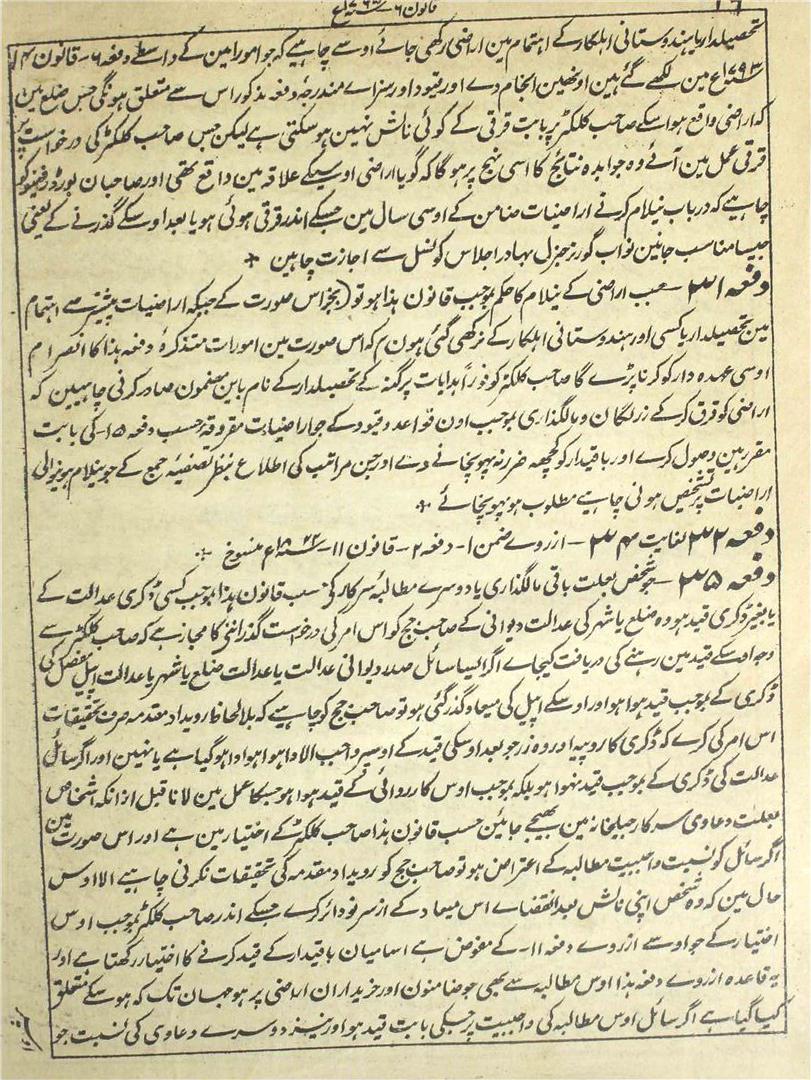 قانون ۶ سنہ ۱۷۹۵ع
۱۶
تحصیلدار یا ہندوستانی اہلکار کے اہتمام مین اراضی رکھی جائے اوسے چاہیے کہ جو امور امین کے واسطے دفعہ ۶ - قانون ۴
سنہ ۱۷۹۳ع مین لکھے گئے ہین اونھین انجام دے اور قیود اور سزاے مندرجۂ دفعہ مذکور اس سے متعلق ہونگی جس ضلع مین
کہ اراضی واقع ہو اسکے صاحب کلکٹر پر بابت قرقی کے کوئی نالش نہین ہو سکتی ہے لیکن جس صاحب کلکٹر کی درخواست پر
قرقی عمل مین آئے وہ جوابدہ نتائج کا اسی نہج پر ہوگا کہ گویا اراضی اوسیکے علاقہ مین واقع تھی اور صاحبان بورڈ رونیو کو
چاہیے کہ درباب نیلام کرنے اراضیات ضامن کے اوسی سال مین جسکے اندر قرقی ہوئی ہو یا بعد اوسکے گذرنے کے یعنی
جیسا مناسب جانین نواب گورنر جنرل بہادر اجلاس کونسل سے اجازت چاہین +
دفعہ ۳۱ - جب اراضی کے نیلام کا حکم بموجب قانون ہذا ہو تو (بجز اس صورت کے جبکہ اراضیات پیشتر سے اہتمام
مین تحصیلدار یا کسی اور ہندوستانی اہلکار کے نرکھی گئی ہون کہ اس صورت مین امورات متذکرۂ دفعہ ہذا کا انصرام
اوسی عہدہ دار کو کرنا پڑے گا صاحب کلکٹر کو فوراً ہدایات پرگنہ کے تحصیلدار کے نام باین مضمون صادر کرنی چاہیین کہ
اراضی کو قرق کرکے زر لگان و مالگذاری بموجب اون قواعد و قیود کے جو اراضیات مقروقہ حسب دفعہ ۱۵ - کی بابت
مقرر ہین وصول کرے اور باقیدار کو کچھہ ضرر نہ پہونچانے دے اور جن مراتب کی اطلاع بنظر تصفیۂ جمع کے جو نیلام ہونیوالی
اراضیات پر تشخیص ہونی چاہیے مطلوب ہو پہونچائے +
دفعہ ۳۲ لغایت ۳۴ - ازروے ضمن ۱ - دفعہ ۲ - قانون ۱۱ - سنہ ۱۸۲۲ع منسوخ +
دفعہ ۳۵ - جو شخص بعلت باقی مالگذاری یا دوسرے مطالبۂ سرکار کے حسب قانون ہذا بموجب کسی ڈکری عدالت کے
یا بغیر ڈکری قید ہو وہ ضلع یا شہر کی عدالت دیوانی کے صاحب جج کو اس امر کی درخواست گذراننے کا مجاز ہے کہ صاحب کلکٹر سے
وجہ اوسکے قید مین رہنے کی دریافت کیجاے اگر ایسا سائل صدر دیوانی عدالت یا عدالت ضلع یا شہر یا عدالت اپیل مفصل کی
ڈکری کے بموجب قید ہوا ہو اور اوسکے اپیل کی میعاد گذر گئی ہو تو صاحب جج کو چاہیے کہ بلالحاظ رویداد مقدمہ صرف تحقیقات
اس امر کی کرے کہ ڈکری کا روپیہ اور وہ زر جو بعد اوسکی قید کے اوسپر واجب الادا ہوا ہو ادا ہو گیا ہے یا نہین اور اگر سائل
عدالت کی ڈکری کے بموجب قید نہوا ہو بلکہ بموجب اوس کارروائی کے قید ہوا ہو جسکا عمل مین لانا قبل ازانکہ اشخاص
بعلت دعاوی سرکار جیلخانہ مین بھیجے جائین حسب قانون ہذا صاحب کلکٹر کے اختیار مین ہے اور اس صورت مین
اگر سائل کو نسبت واجبیت مطالبہ کے اعتراض ہو تو صاحب جج کو رویداد مقدمہ کی تحقیقات نکرنی چاہیے الا اوس
حال مین کہ وہ شخص اپنی نالش بعد انقضاے اس میعاد کے ازسرنو دائر کرے جسکے اندر صاحب کلکٹر بموجب اوس
اختیار کے جو اوسے ازروے دفعہ ۱۱ - کے مفوض ہے اسامیان باقیدار کے قید کرنے کا اختیار رکھتا ہے اور
یہ قاعدہ ازروے دفعہ ہذا اوس مطالبہ سے بھی جو ضامنون اور خریداران اراضی پر ہو جہان تک کہ ہوسکے متعلق
کیا گیا ہے اگر سائل اوس مطالبہ کی واجبیت پر جسکی بابت قید ہو اور نیز دوسرے دعاوی کی نسبت جو